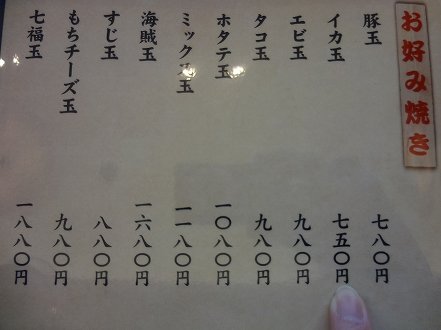 お好み焼き
豚玉 七八〇円
イカ玉 七五〇円
エビ玉 九八〇円
タコ玉 九八〇円
ホタテ玉 一〇八〇円
ミックス玉 一一八〇円
海賊玉 一六八〇円
すじ玉 八八〇円
もちチーズ玉 九八〇円
七福玉 一八八〇円